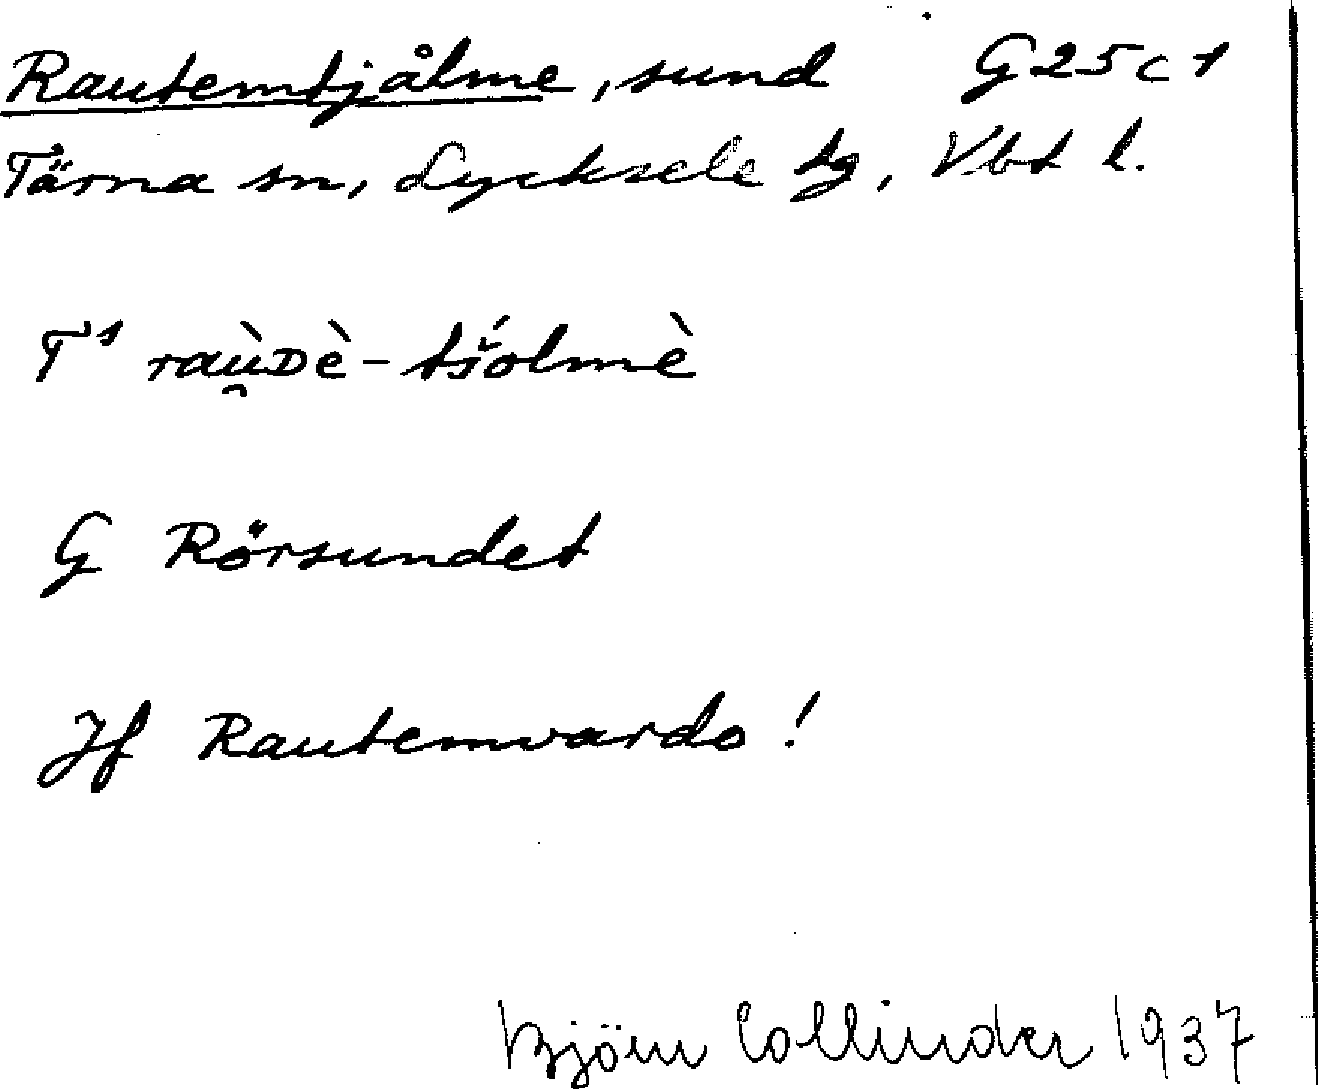 Rautemtjålme, sund G25c1
Tärna sn, Lycksele tg, Vbt l.
T¹ raù̯ᴅè-tš́olmè
G Rörsundet
Jf Rautemvardo!
Björn Collinder 1937